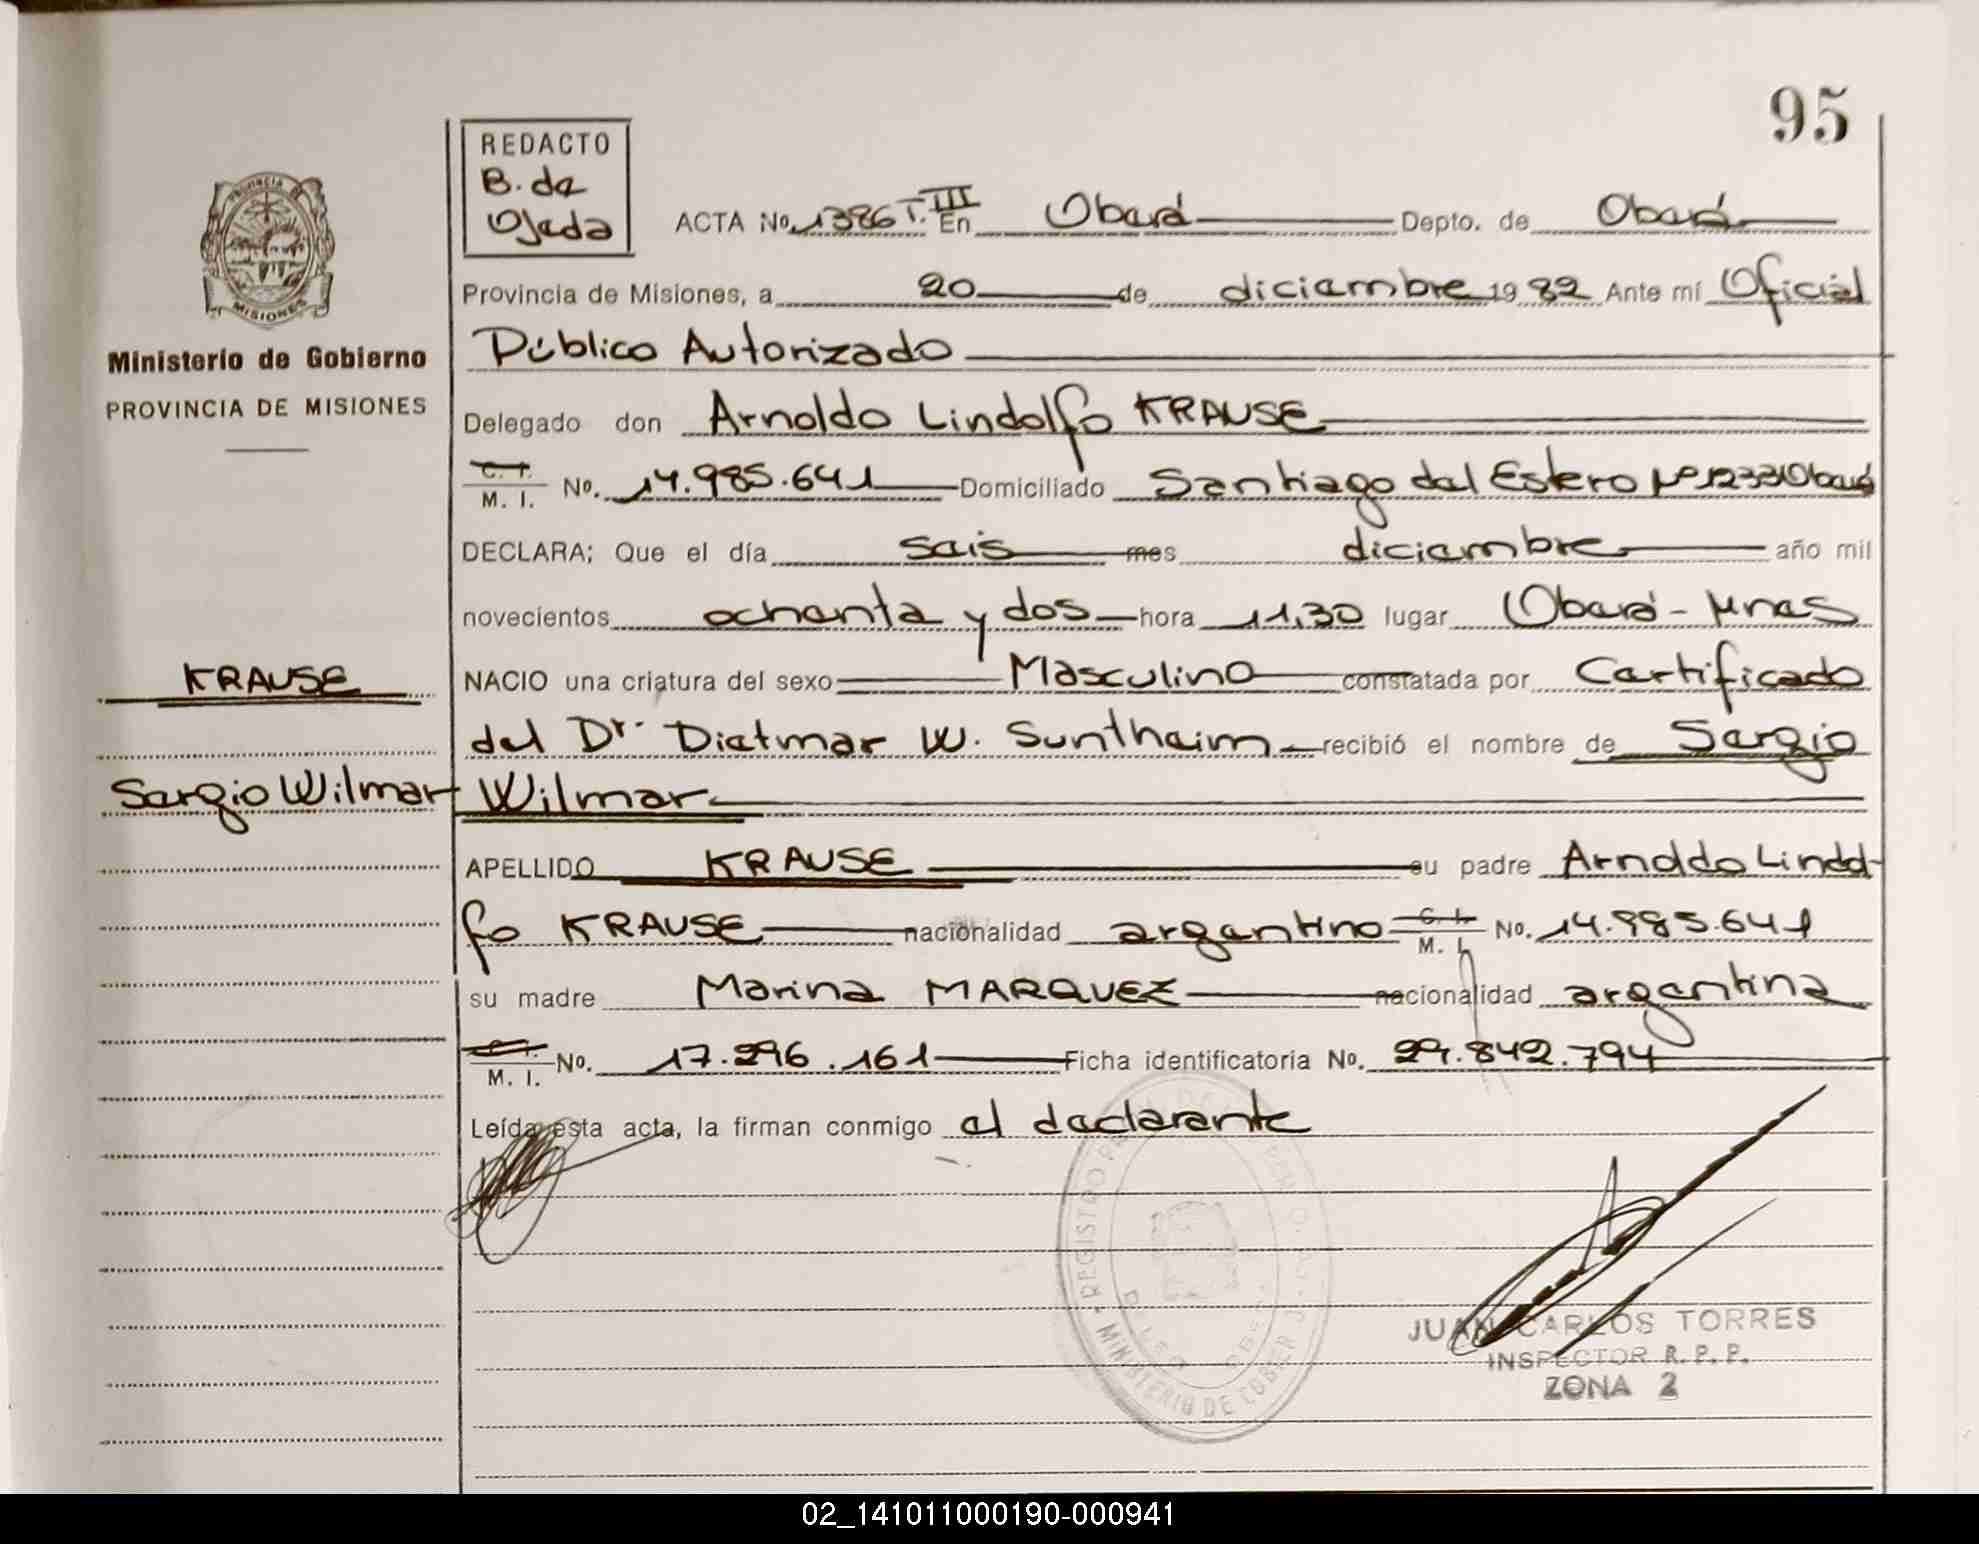 95
REDACTO
B. de
Ojeda
ACTA No. 1386 T. III En Oberá Depto. de Oberá
Provincia de Misiones, a 20 de diciembre 1982 Ante mí Oficial
Público Autorizado
Delegado don Arnoldo Lindolfo KRAUSE
C. I.
M. I. No. 14.985.641 Domiciliado Santiago del Estero Nº 1233 Oberá
DECLARA; Que el día seis mes diciembre año mil
novecientos ochenta y dos hora 11,30 lugar Oberá - Mnes
NACIO una criatura del sexo Masculino constatada por Certificado
del Dr. Dietmar W. Suntheim recibió el nombre de Sergio
Wilmar
APELLIDO KRAUSE su padre Arnoldo Lindol-
fo KRAUSE nacionalidad argentino C. I. M. I. No. 14.985.641
su madre Marina MARQUEZ nacionalidad argentina
C. I.
M. I. No. 17.296.161 Ficha identificatoria No. 29.842.794
Leída esta acta, la firman conmigo el declarante
PROVINCIA DE
MISIONES
Ministerio de Gobierno
PROVINCIA DE MISIONES
KRAUSE
Sergio Wilmar
REGISTRO
MINISTERIO DE GOBIER
JUAN CARLOS TORRES
INSPECTOR R. P. P.
ZONA 2
02_141011000190-000941